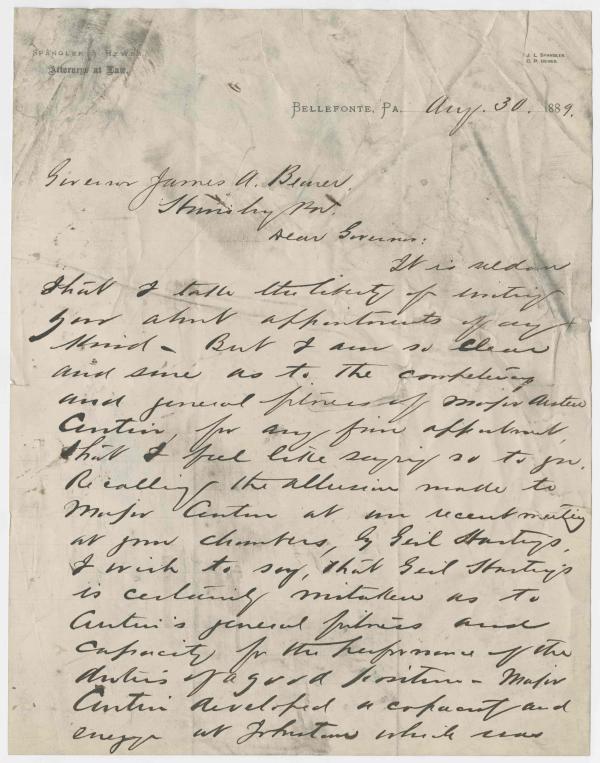 SPANGLER & HEWES,
Attorneys at Law.
J. L. SPANGLER.
C. P. HEWES.
BELLEFONTE, PA. Aug. 30. 1889.
Governor James A. Beaver.
Dear Governor:
It is seldom
that I take the liberty of writing
you about appointments of any
kind - But I am so clear
and sure as to the competency
and general fitness of Major Austin
Curtin, for any fair appointment,
that I feel like saying so to you.
Recalling the allusion made to
Major Curtin at our recent meeting
at your chambers, by Genl Hastings,
I wish to say, that Genl Hastings
is certainly mistaken as to
Curtin's general fitness and
capacity for the performance of the
duties of a good position - Major
Curtin developed a capacity and
energy at Johnstown which was